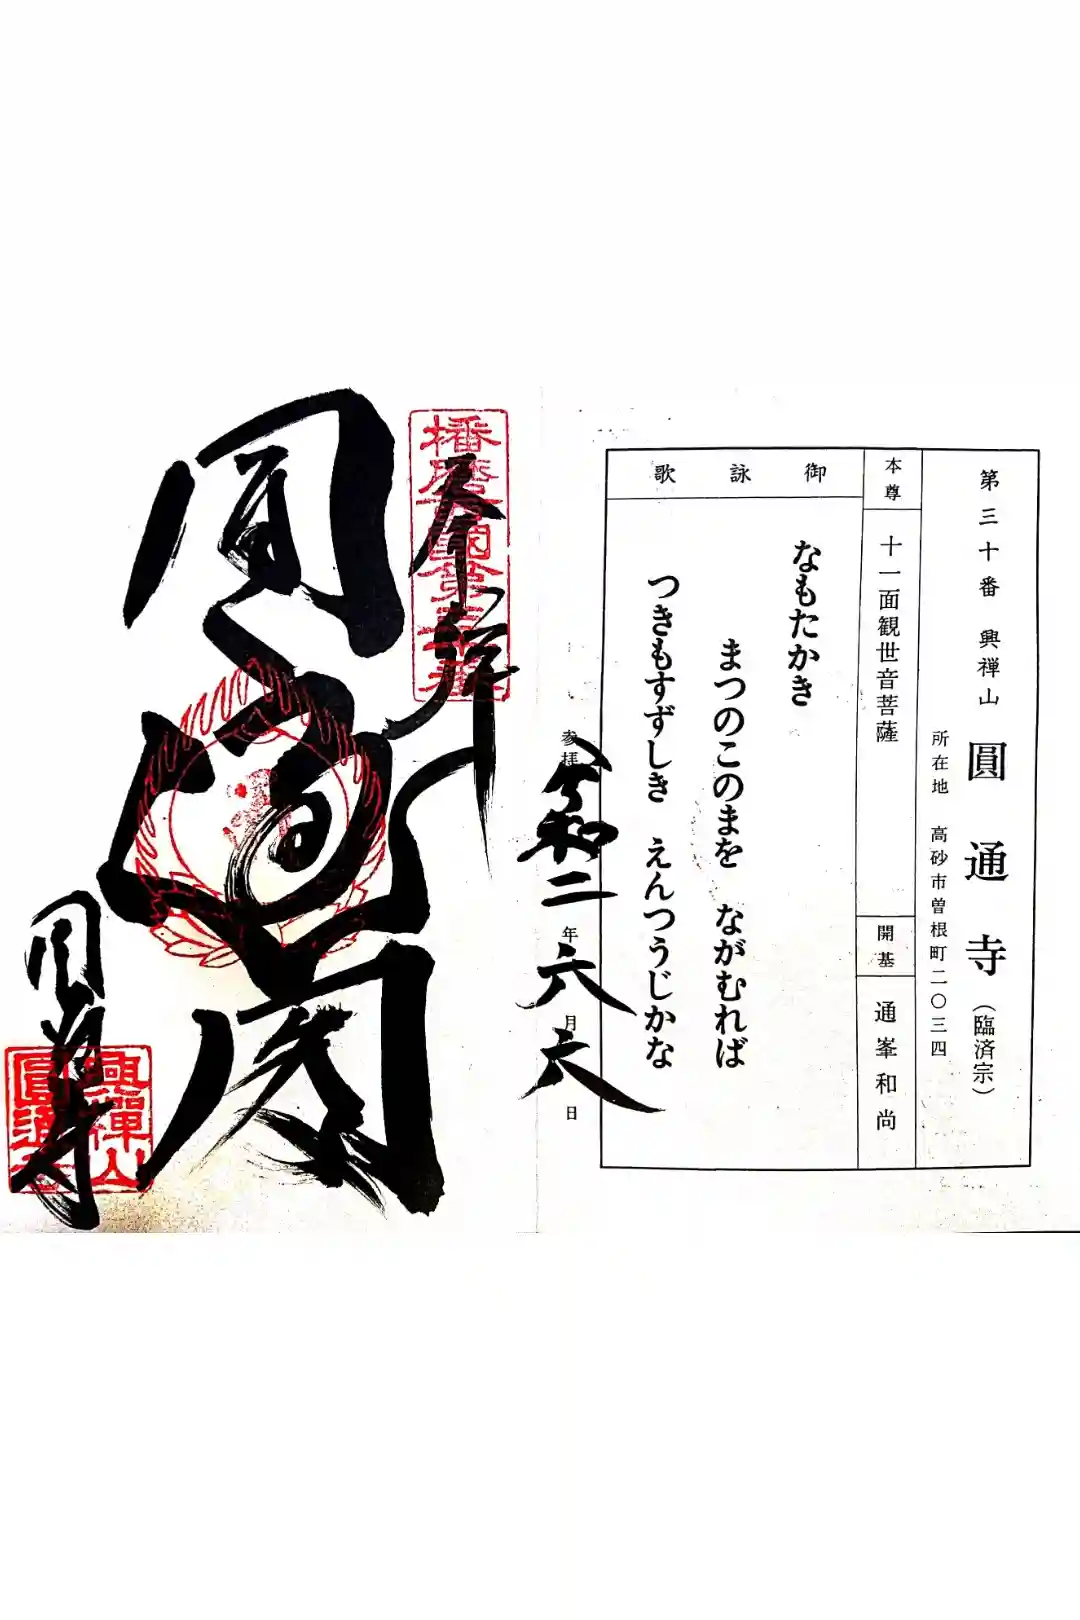 第三十番 興禅山 圓通寺（臨済宗）
所在地 高砂市曽根町二〇三四
本尊 十一面観世音菩薩
開基 通峯和尚
御詠歌
なもたかき
まつのこのまを ながむれば
つきもすずしき えんつうじかな
参拝 令和二年六月六日
奉拝
播磨西國第三十番
圓通閣
圓通寺
興禅山
圓通寺